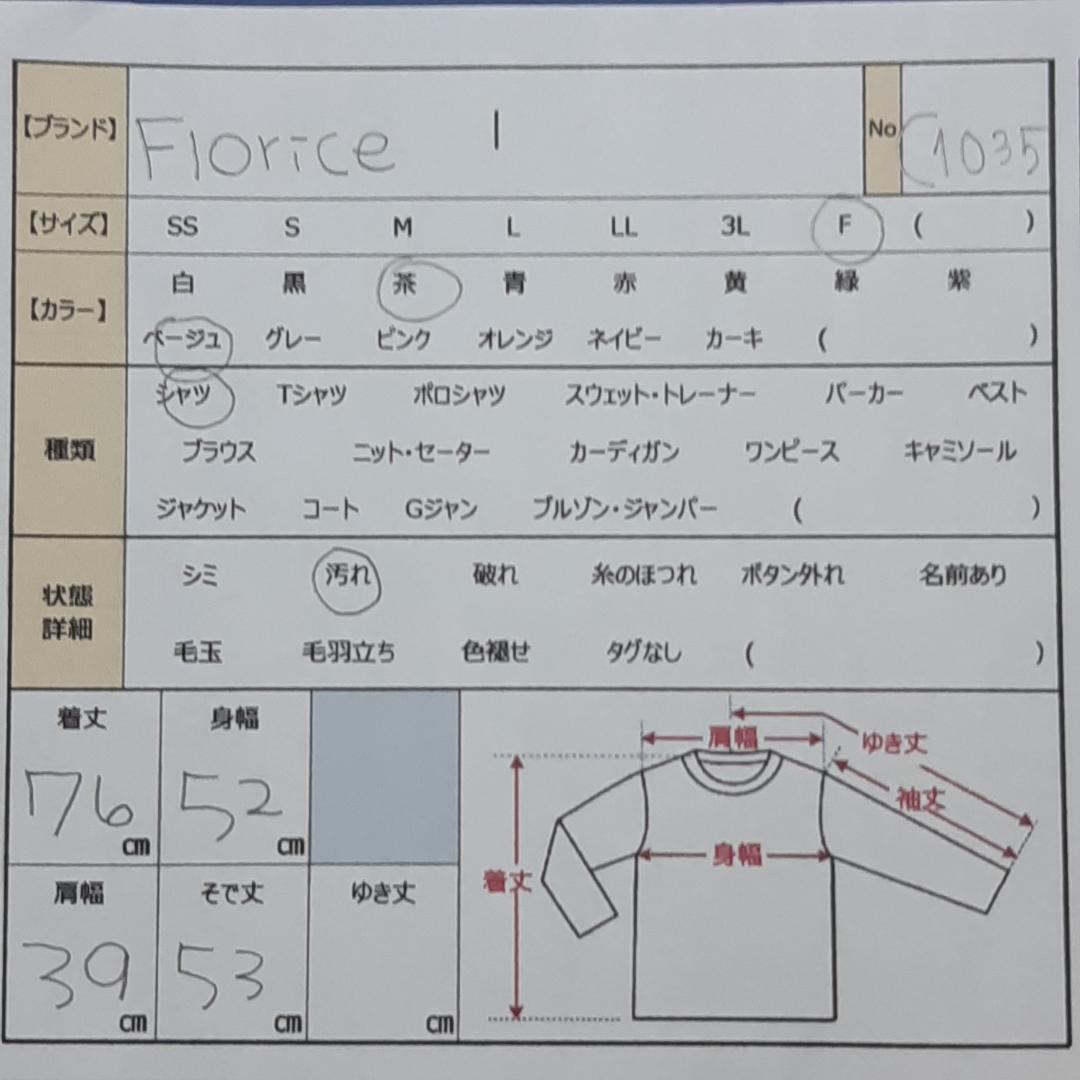 【ブランド】 Florice No C1035
【サイズ】 SS S M L LL 3L F ( )
【カラー】 白 黒 茶 青 赤 黄 緑 紫
ベージュ グレー ピンク オレンジ ネイビー カーキ ( )
種類 シャツ Tシャツ ポロシャツ スウェット・トレーナー パーカー ベスト
ブラウス ニット・セーター カーディガン ワンピース キャミソール
ジャケット コート Gジャン ブルゾン・ジャンパー ( )
状態詳細 シミ 汚れ 破れ 糸のほつれ ボタン外れ 名前あり
毛玉 毛羽立ち 色褪せ タグなし ( )
着丈 身幅
76cm 52cm
肩幅 そで丈 ゆき丈
39cm 53cm cm
肩幅 ゆき丈
袖丈
着丈 身幅